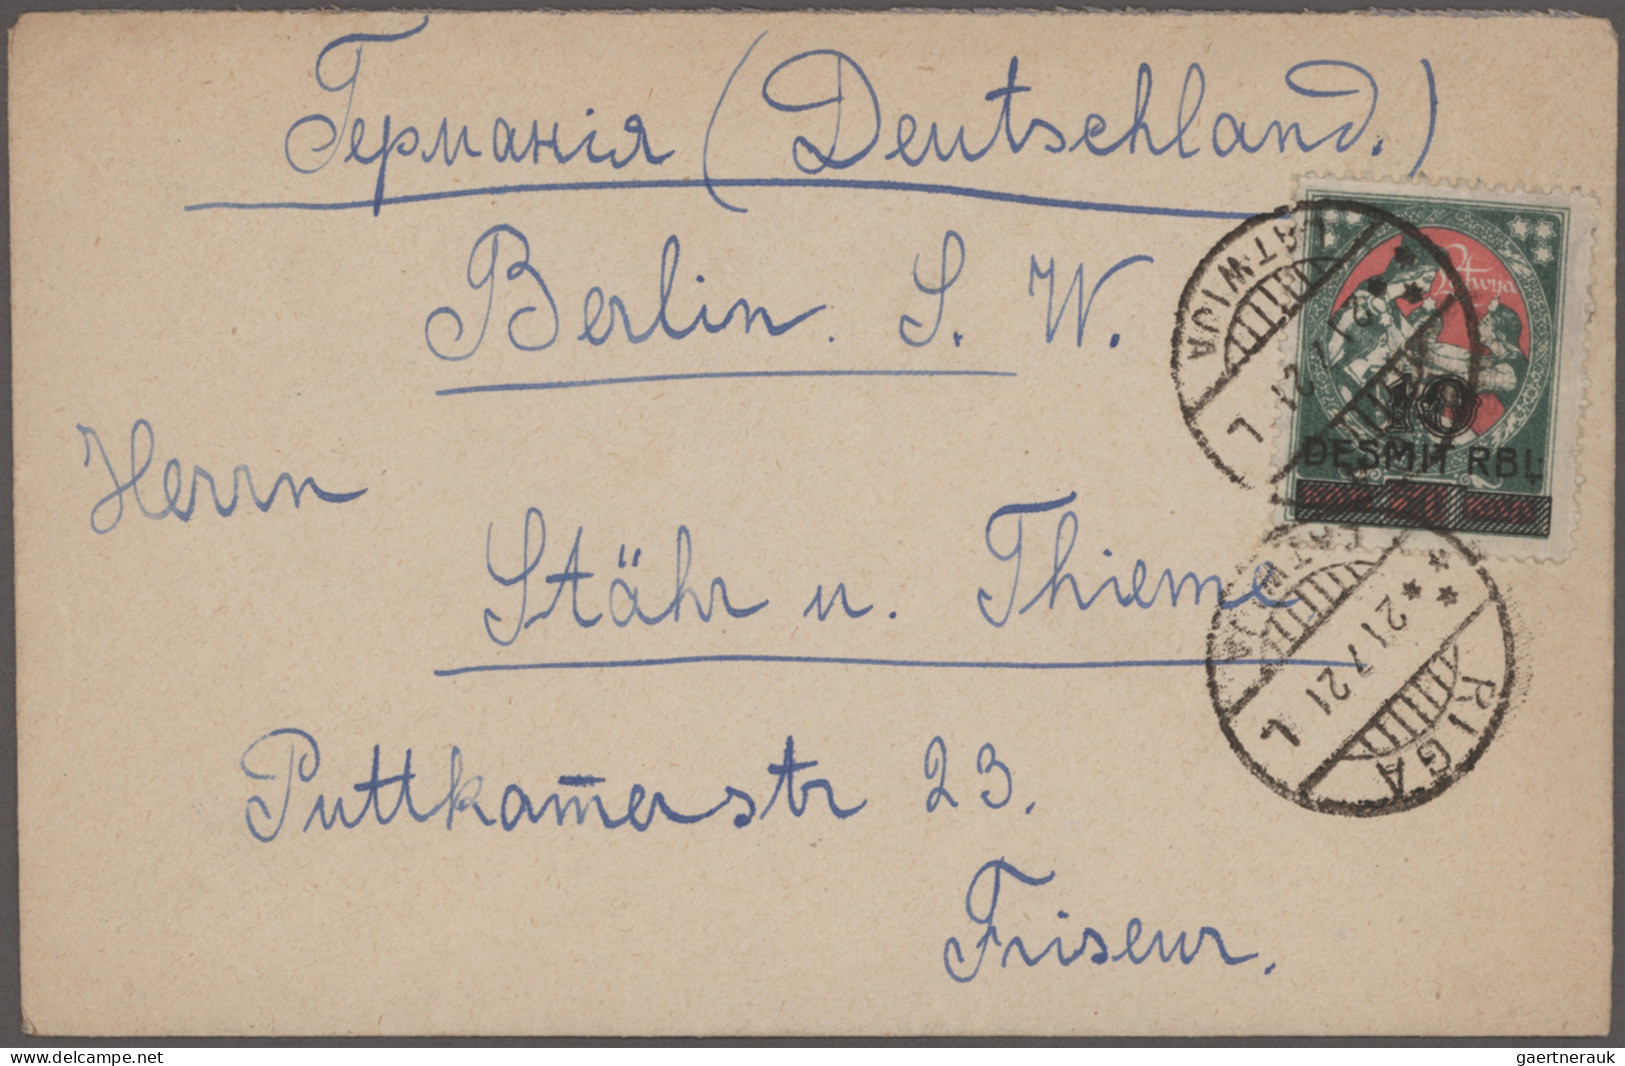 Германія (Deutschland.)
Berlin. S. W.
Herrn
Stähr u. Thieme
Puttkam̅erstr 23.
Friseur.
Latwija
10
DESMIT RBL.
LATWIJA
21 7 21 L
RIGA
21 7 21 L
delcampe.net
gaertnerauk